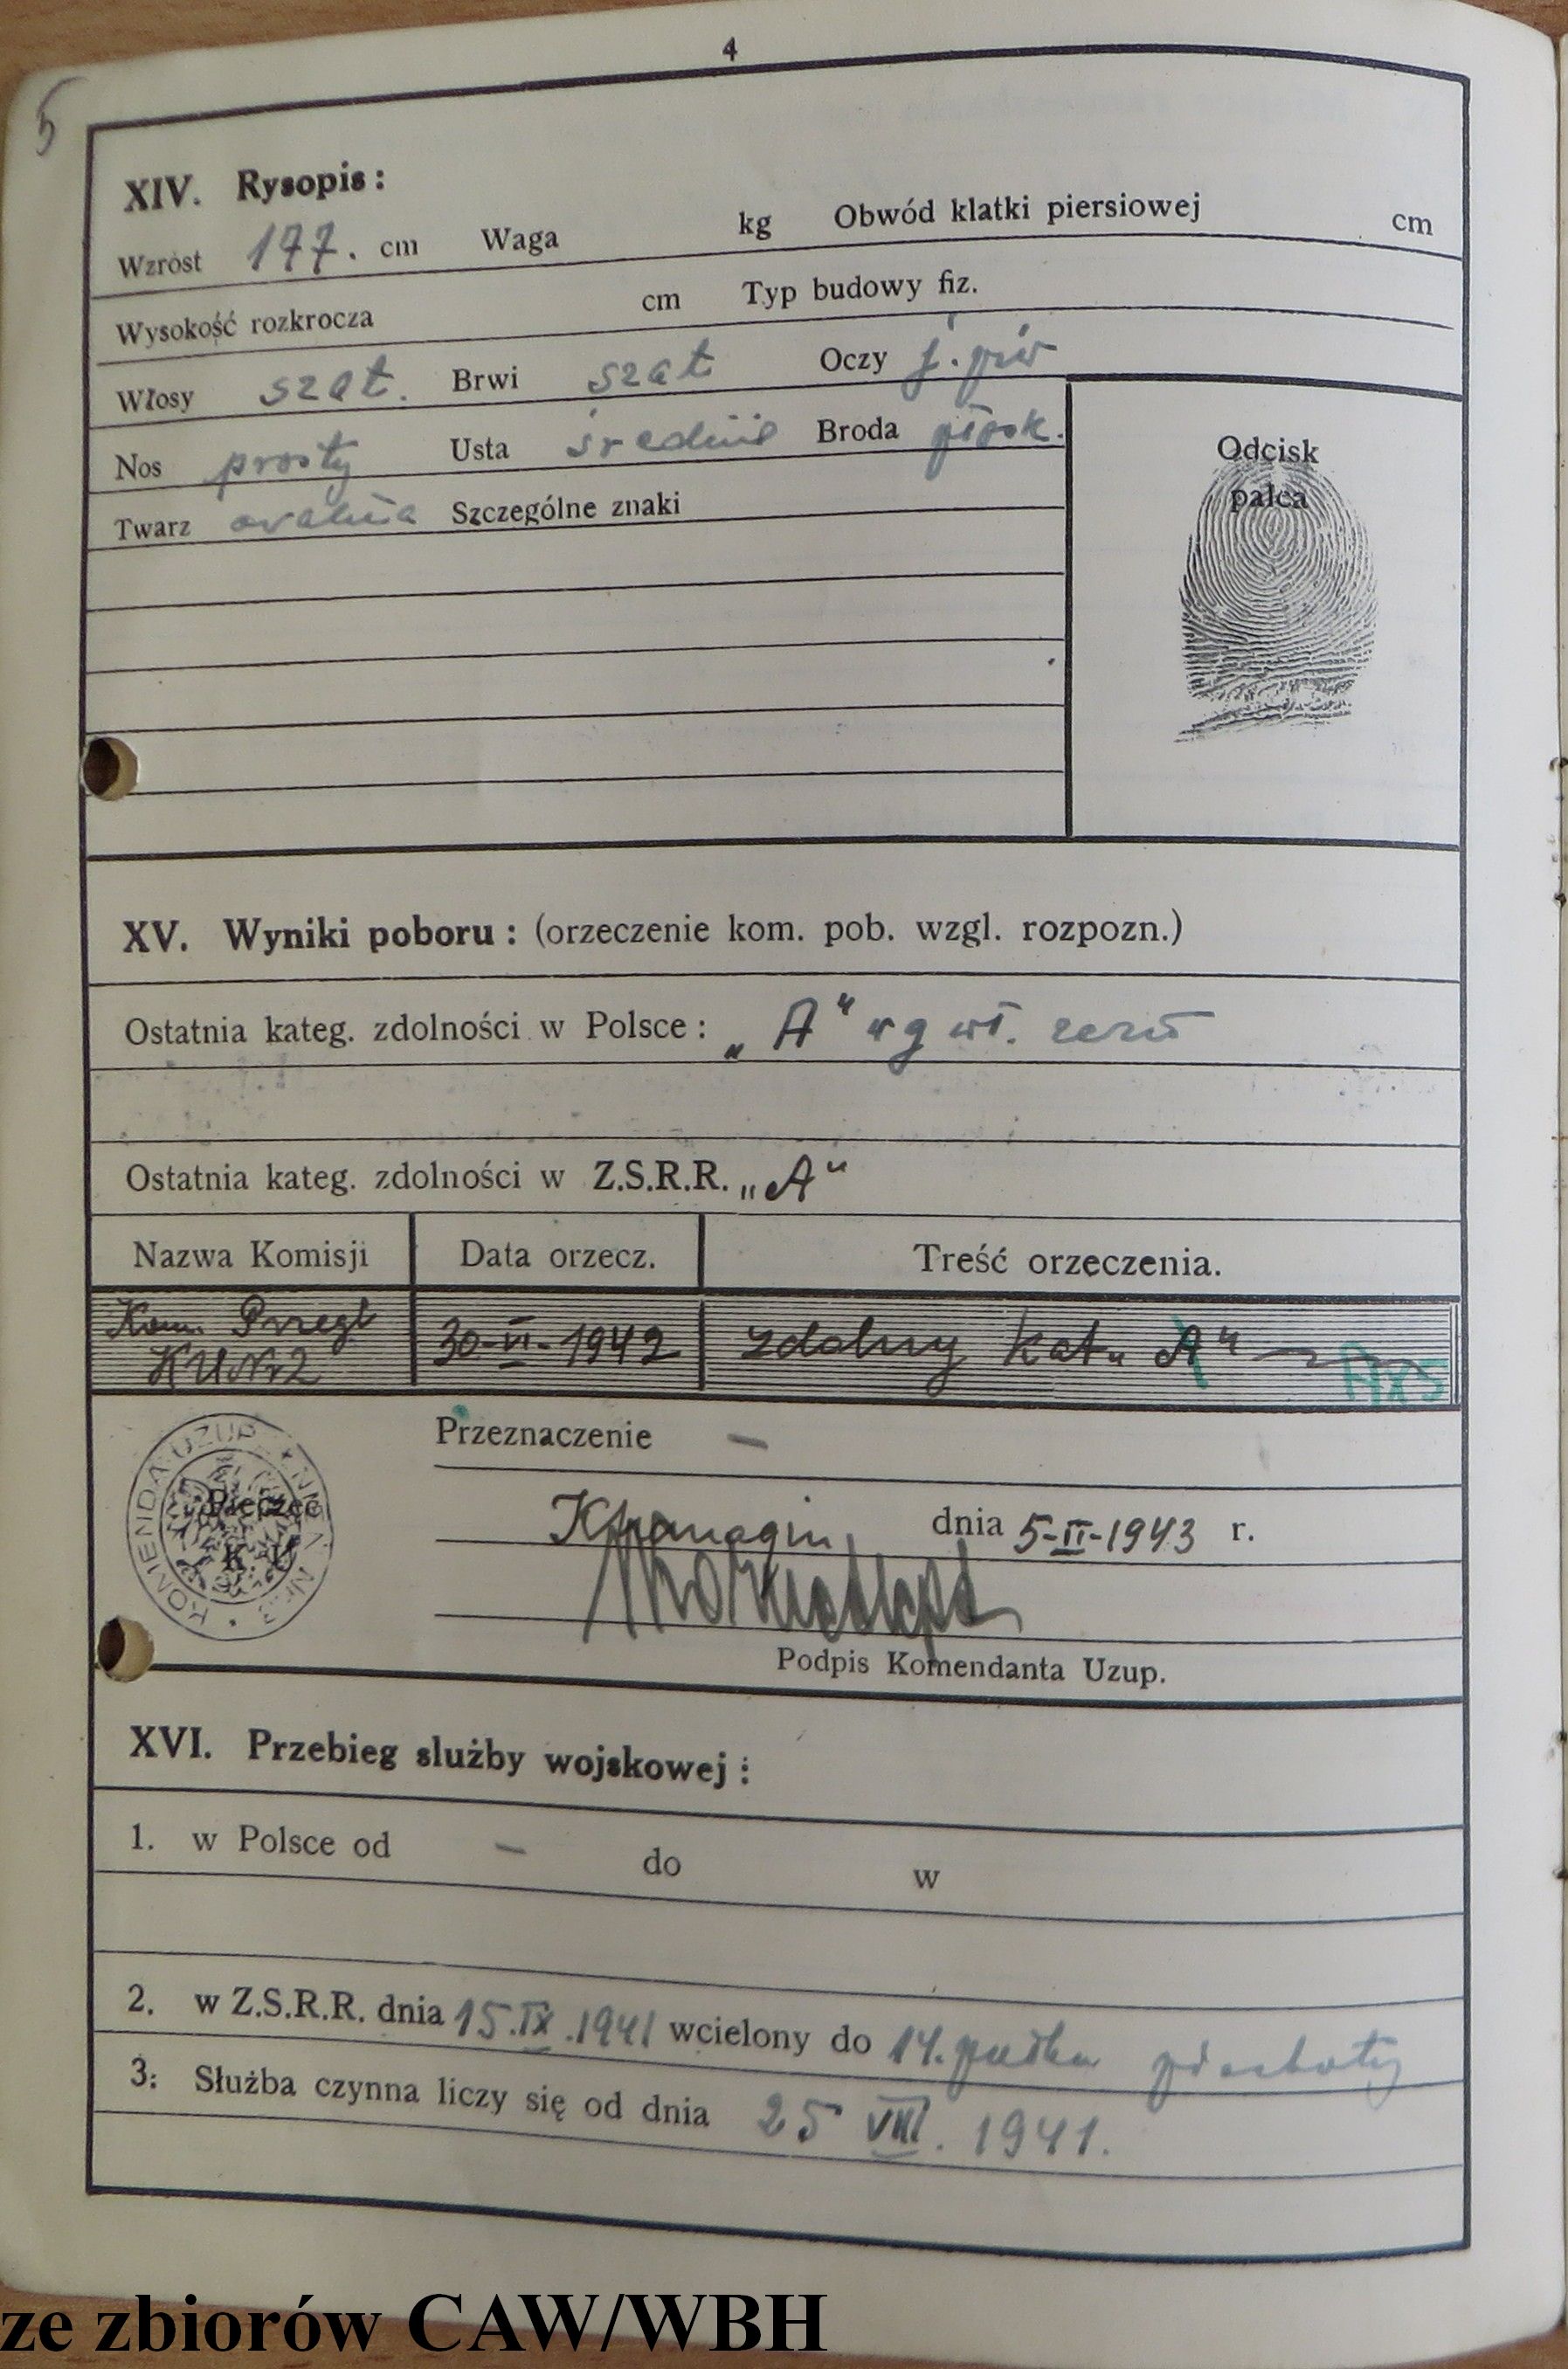 4
5
XIV. Rysopis:
Wzrost 177. cm Waga kg Obwód klatki piersiowej cm
Wysokość rozkrocza cm Typ budowy fiz.
Włosy szat. Brwi szat Oczy j. piw
Nos prosty Usta średnie Broda
Twarz owalna Szczególne znaki
Odcisk
palca
XV. Wyniki poboru: (orzeczenie kom. pob. wzgl. rozpozn.)
Ostatnia kateg. zdolności w Polsce: „A" wg wł. zezn
Ostatnia kateg. zdolności w Z.S.R.R. „A"
Nazwa Komisji Data orzecz. Treść orzeczenia.
Kom. Przegl 30-VI-1942 zdolny kat „A"
KU Nr 2
Przeznaczenie –
KOMENDA UZUP. NR. 3
Pieczęć
K. U
Khanaqin dnia 5-II-1943 r.
Podpis Komendanta Uzup.
XVI. Przebieg służby wojskowej:
1. w Polsce od – do w
2. w Z.S.R.R. dnia 15.IX.1941 wcielony do 14. pułku piechoty
3: Służba czynna liczy się od dnia 25 VIII. 1941.
ze zbiorów CAW/WBH